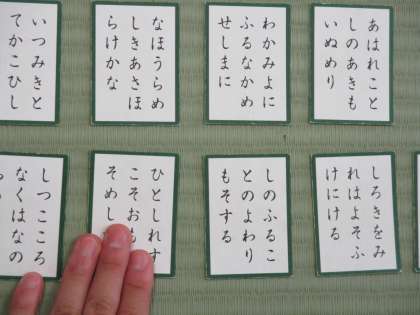 あはれこと
しのあきも
いぬめり
わかみよに
ふるなかめ
せしまに
なほうらめ
しきあさほ
らけかな
いつみきと
てかこひし
しろきをみ
れはよそふ
けにける
しのふるこ
とのよわり
もそする
ひとしれす
こそおも
そめし
しつこころ
なくはなの